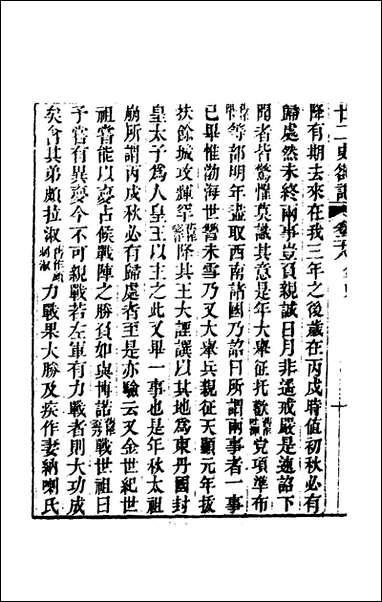 廿二史劄記
降有期去來在我三年之後歲在丙戌時值初秋必有
歸處然未終兩事豈負親誠日月非遥戒嚴是速詔下
聞者皆驚懼莫識其意是年大舉征托歡党項準布
等部明年盡取西南諸國乃詔曰所謂兩事者一事
已畢惟渤海世讐未雪乃又大舉兵親征天顯元年拔
扶餘城攻輝罕降其王大諲譔以其地為東丹國封
皇太子為人皇王以主之此又畢一事也是年秋太祖
崩所謂丙戌秋必有歸處者至是亦驗云又金世紀世
祖嘗能以夢占候戰陣之勝負如與博諾戰世祖曰
予嘗有異夢今不可親戰若左軍有力戰者則大功成
矣令其弟頗拉淑力戰果大勝及疾作妻納喇氏